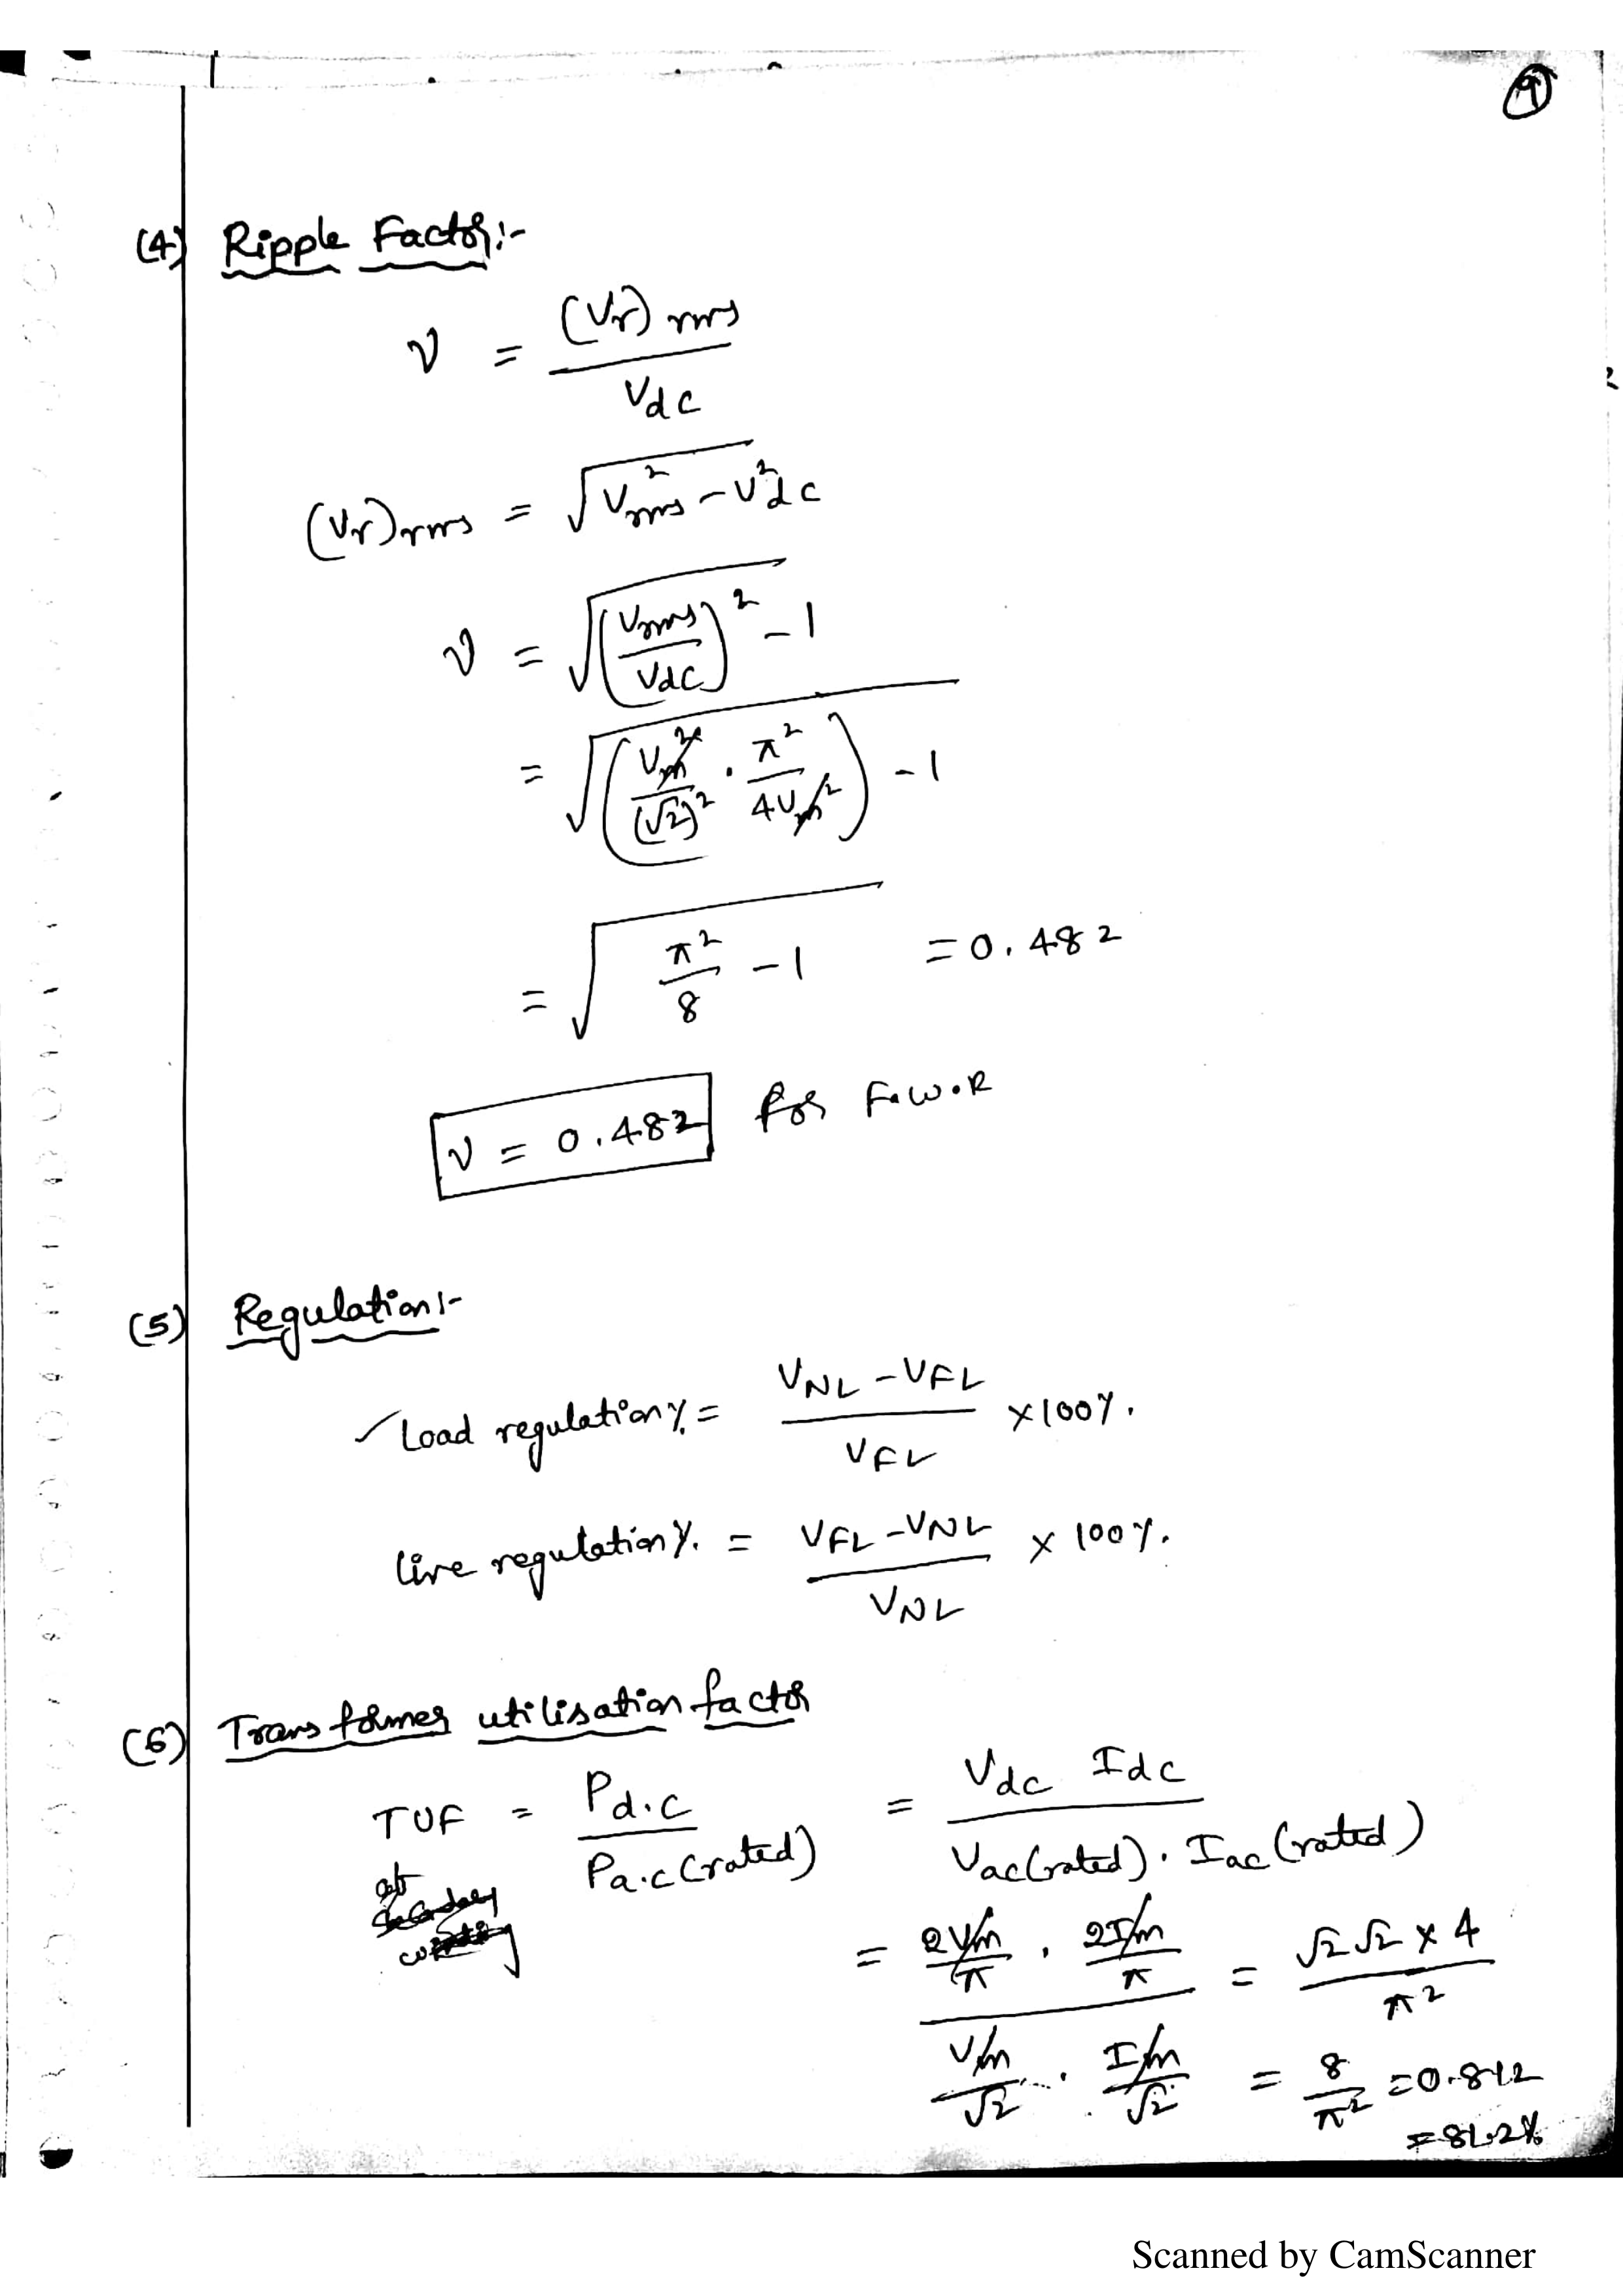 9
(4) Ripple Factor:-
γ = (Vr)rms / Vdc
(Vr)rms = √(Vrms² - V²dc)
γ = √((Vrms/Vdc)² - 1)
= √((Vm²/(√2)² · π²/4Vm²) - 1)
= √(π²/8 - 1) = 0.482
γ = 0.482 for F.W.R
(5) Regulation:-
✓ Load regulation % = (VNL - VFL)/VFL × 100%.
line regulation %. = (VFL - VNL)/VNL × 100%.
(6) Transformer utilisation factor
TUF = Pd.c / Pa.c (rated) = Vdc Idc / Vac(rated) · Iac (rated)
at
= (2Vm/π · 2Im/π) / (Vm/√2 · Im/√2) = √2 √2 × 4 / π²
= 8/π² = 0.812
= 81.2%
Scanned by CamScanner